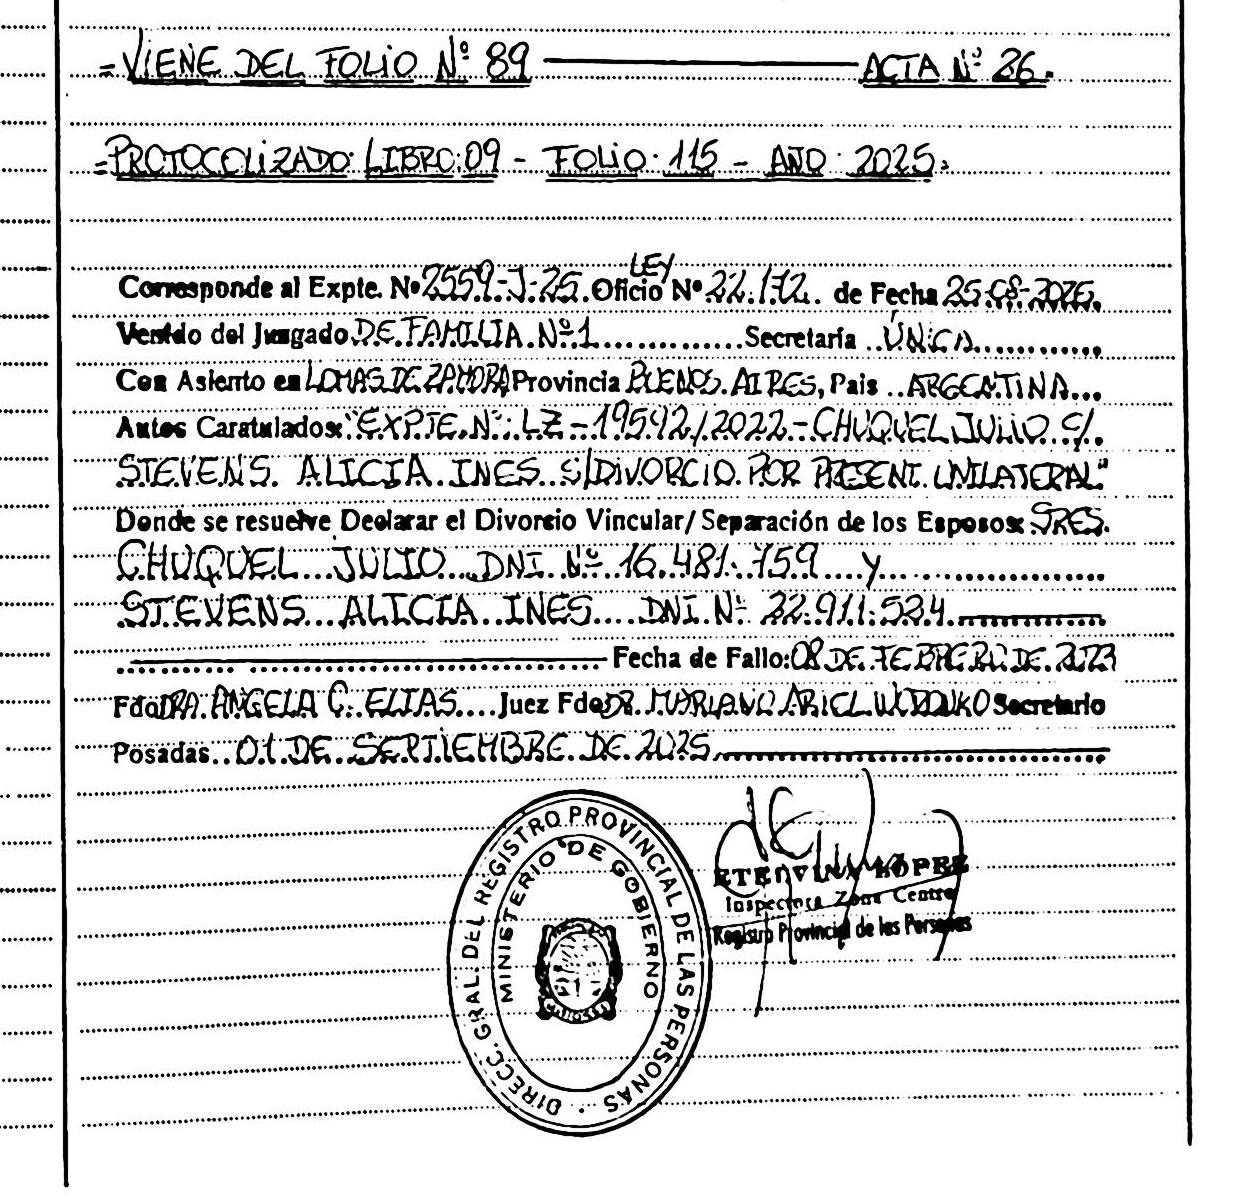 =VIENE DEL FOLIO Nº 89 ACTA Nº 26.
=PROTOCOLIZADO: LIBRO: 09 - FOLIO: 115 - AÑO: 2025.
LEY
Corresponde al Expte. Nº 2559-J-25. Oficio Nº 22.172. de Fecha 25-08-2025.
Venido del Juzgado DE FAMILIA Nº 1 Secretaría ÚNICA
Con Asiento en LOMAS DE ZAMORA Provincia BUENOS AIRES, Pais ARGENTINA
Autos Caratulados: "EXPTE. Nº: LZ-19542/2022-CHUQUEL JULIO C/.
STEVENS. ALICIA. INES S/DIVORCIO POR PRESENT. UNILATERAL"
Donde se resuelve Declarar el Divorcio Vincular/Separación de los Esposos: SRES.
CHUQUEL JULIO DNI Nº 16.481.759 y
STEVENS ALICIA INES DNI Nº 22.911.524
Fecha de Fallo: 08 DE FEBRERO DE 2023
Fdo DRA. ANGELA C. ELIAS Juez Fdo DR. MARIANO ARIEL Secretario
Posadas 01 DE SEPTIEMBRE DE 2025
DIRECC. GRAL. DEL REGISTRO PROVINCIAL DE LAS PERSONAS
MINISTERIO DE GOBIERNO
MISIONES
ETELVINA LÓPEZ
Inspectora Zona Centro
Registro Provincial de las Personas